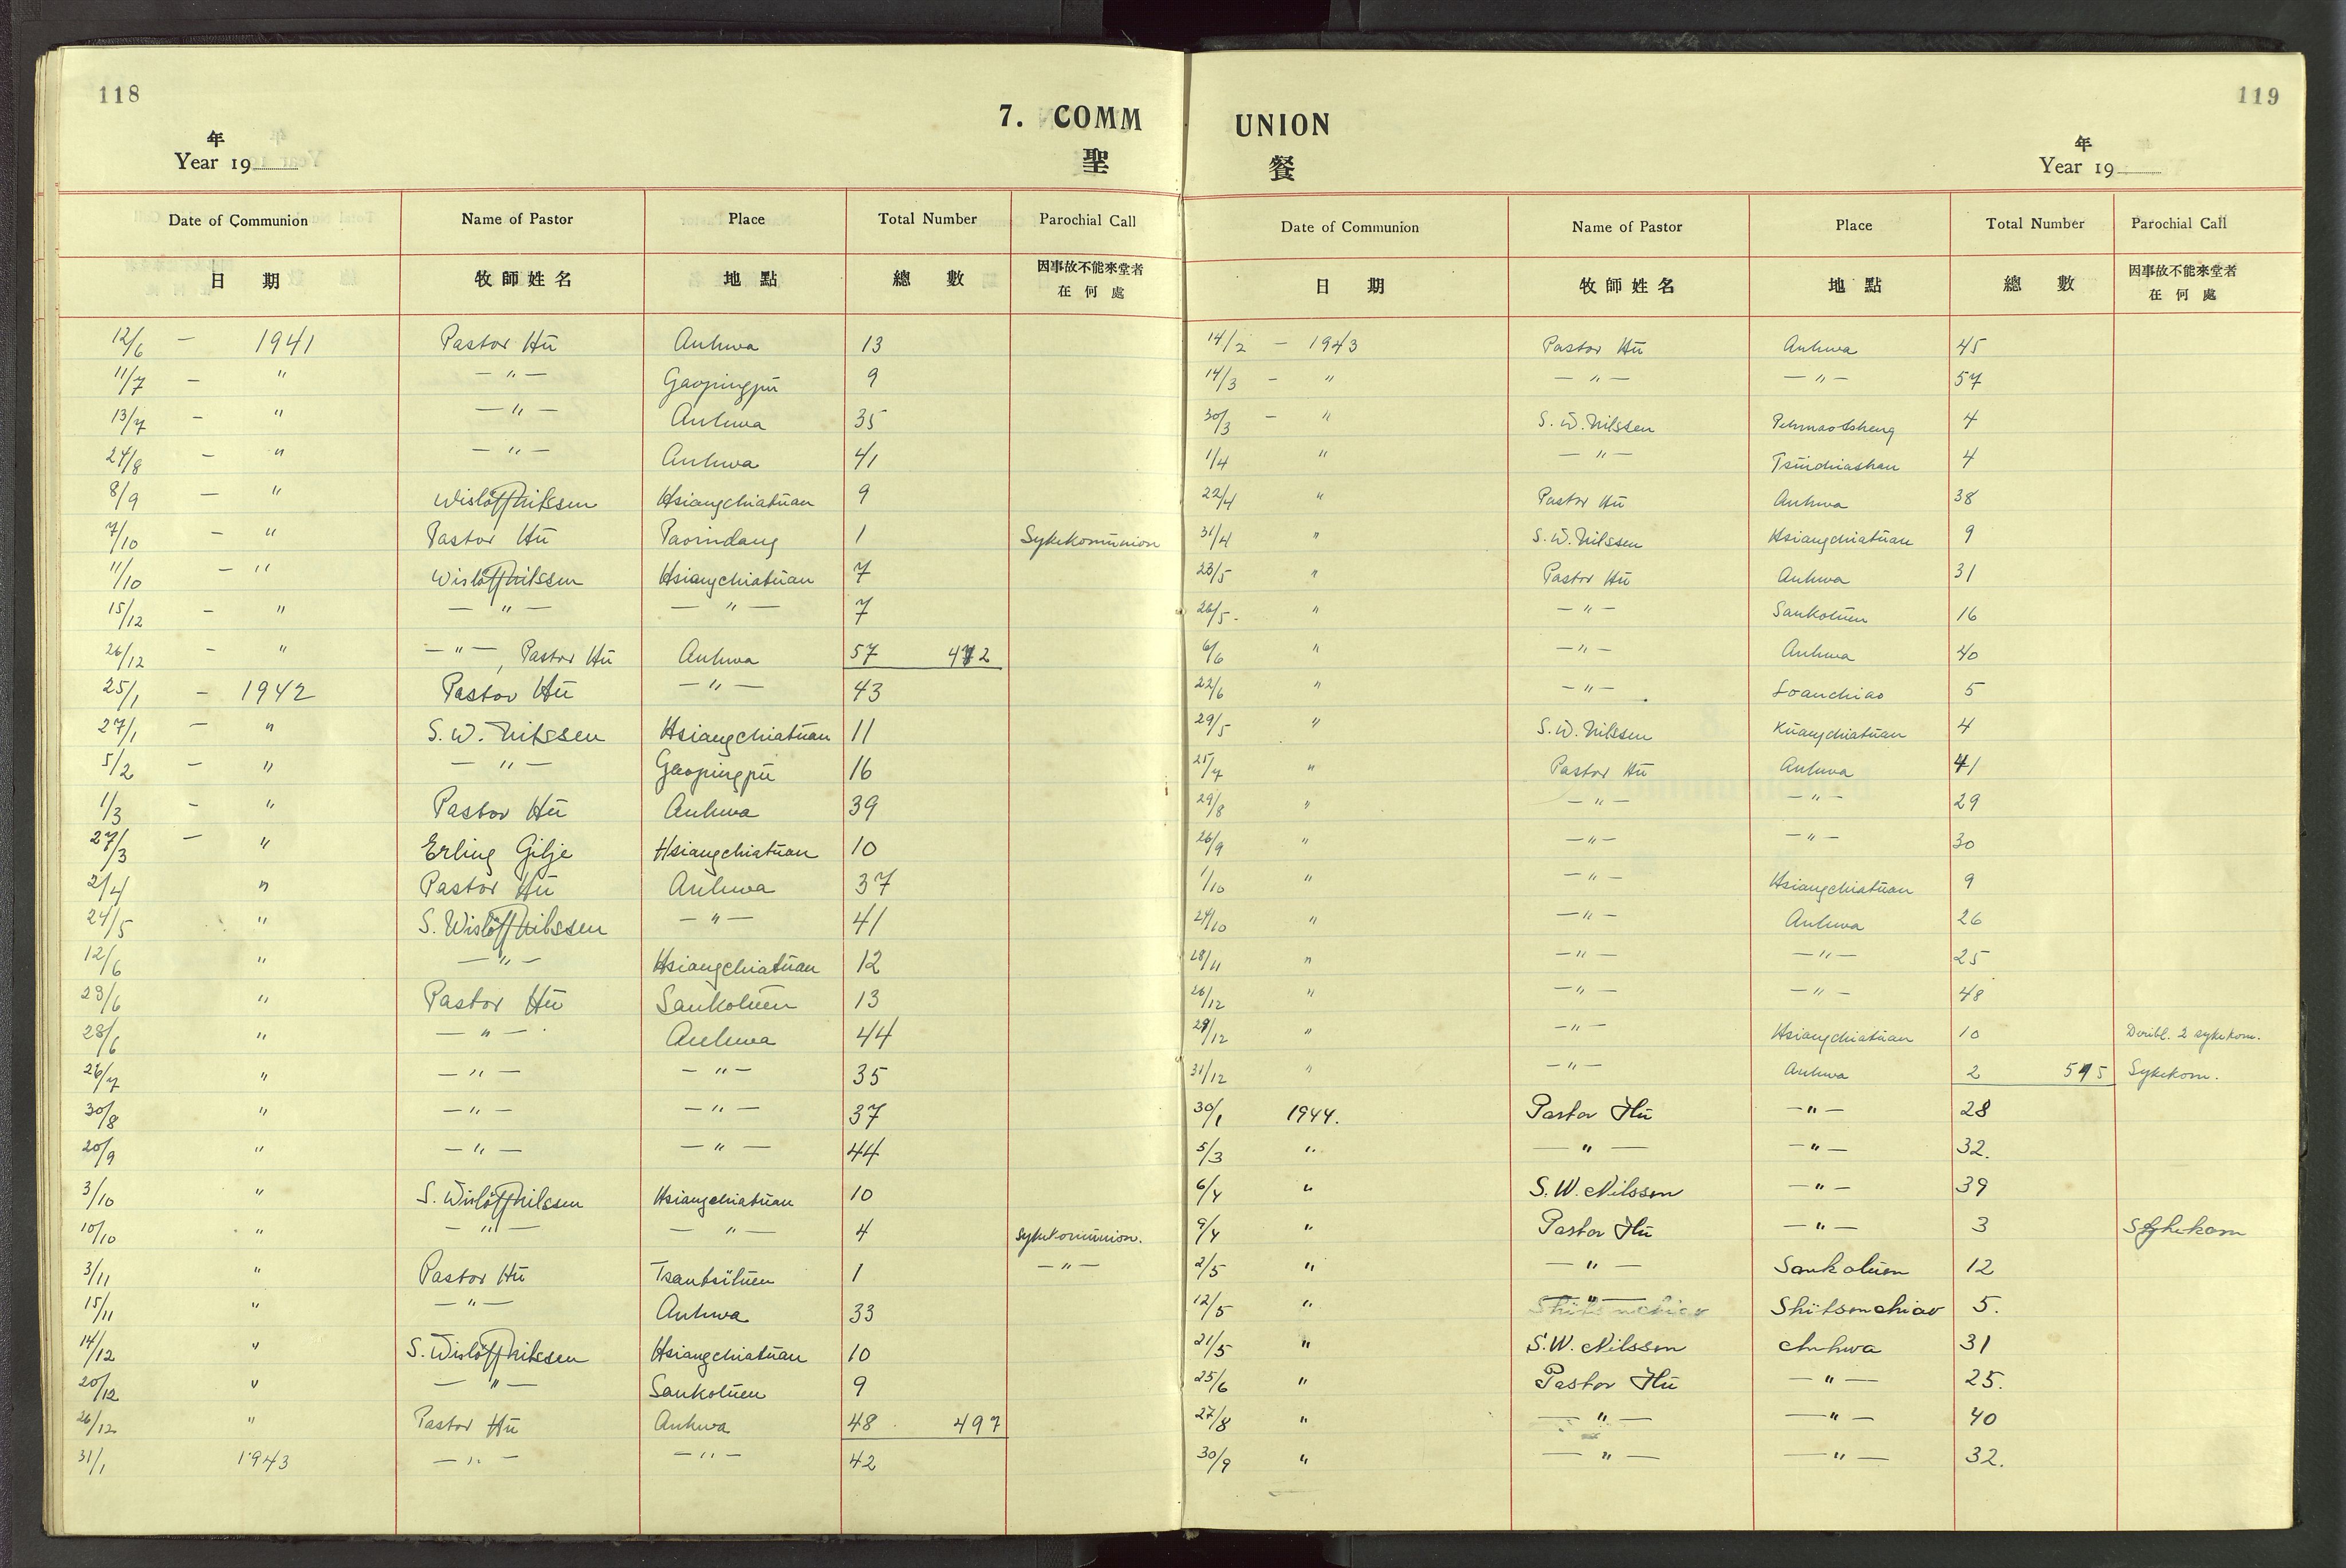 118
7. COMM
年
Year 19
聖
Date of Communion Name of Pastor Place Total Number Parochial Call
日 期 牧師姓名 地點 總 數 因事故不能來堂者
在何處
12/6 – 1941 Pastor Hū Anhwa 13
11/7 – " — " — Gaopingpū 9
13/7 – " — " — Anhwa 35
24/8 – " — " — Anhwa 41
8/9 – " Wislöff Nilssen Hsiangchiatūan 9
7/10 – " Pastor Hū 1 Sykekomūnion
11/10 – " Wislöff Nilssen Hsiangchiatūan 7
15/12 – " — " — — " — 7
26/12 – " — " —, Pastor Hū Anhwa 57 472
25/1 – 1942 Pastor Hū — " — 43
27/1 – " S. W. Nilssen Hsiangchiatūan 11
5/2 – " — " — Gaopingpū 16
1/3 – " Pastor Hū Anhwa 39
27/3 – " Erling Gilje Hsiangchiatūan 10
2/4 " Pastor Hū Anhwa 37
24/5 " S. Wislöff Nilssen — " — 41
12/6 " — " — Hsiangchiatūan 12
23/6 " Pastor Hū Sankotūen 13
28/6 " — " — Anhwa 44
26/7 " — " — — " — 35
30/8 " — " — — " — 37
20/9 " — " — — " — 44
3/10 " S. Wislöff Nilssen Hsiangchiatūan 10
10/10 " — " — — " — 4 Sykekomūnion.
3/11 " Pastor Hū Tsantsïtūen 1 — " —
15/11 " — " — Anhwa 33
14/12 " S. Wislöff Nilssen Hsiangchiatūan 10
20/12 " — " — Sankotūen 9
26/12 " Pastor Hū Anhwa 48 497
31/1 1943 — " — — " — 42
119
UNION
年
Year 19
餐
Date of Communion Name of Pastor Place Total Number Parochial Call
日 期 牧師姓名 地點 總 數 因事故不能來堂者
在何處
14/2 – 1943 Pastor Hū Anhwa 45
14/3 – " — " — — " — 57
30/3 – " S. W. Nilssen 4
1/4 " — " — 4
22/4 " Pastor Hū Anhwa 38
31/4 " S. W. Nilssen Hsiangchiatūan 9
23/5 " Pastor Hū Anhwa 31
26/5. " — " — Sankotūen 16
6/6 " — " — Anhwa 40
22/6 " — " — Loanchiao 5
29/5 " S. W. Nilssen Kūangchiatūan 4
25/7 " Pastor Hū Anhwa 41
29/8 " — " — — " — 29
26/9 " — " — — " — 30
1/10 " — " — Hsiangchiatūan 9
24/10 " — " — Anhwa 26
28/11 " — " — — " — 25
26/12 " — " — — " — 48
29/12 " — " — Hsiangchiatūan 10 2 sykekom.
31/12 " — " — Anhwa 2 515 Sykekom.
30/1 1944. Pastor Hū — " — 28
5/3 " — " — — " — 32.
6/4 " S. W. Nilssen — " — 39
9/4 " Pastor Hū — " — 3 Sykekom
2/5 " — " — Sankotūen 12
12/5 " — " — Shïtsenchiao 5.
21/5 " S. W. Nilssen Anhwa 31
25/6 " Pastor Hū — " — 25.
27/8 " — " — — " — 40
30/9 " — " — — " — 32.